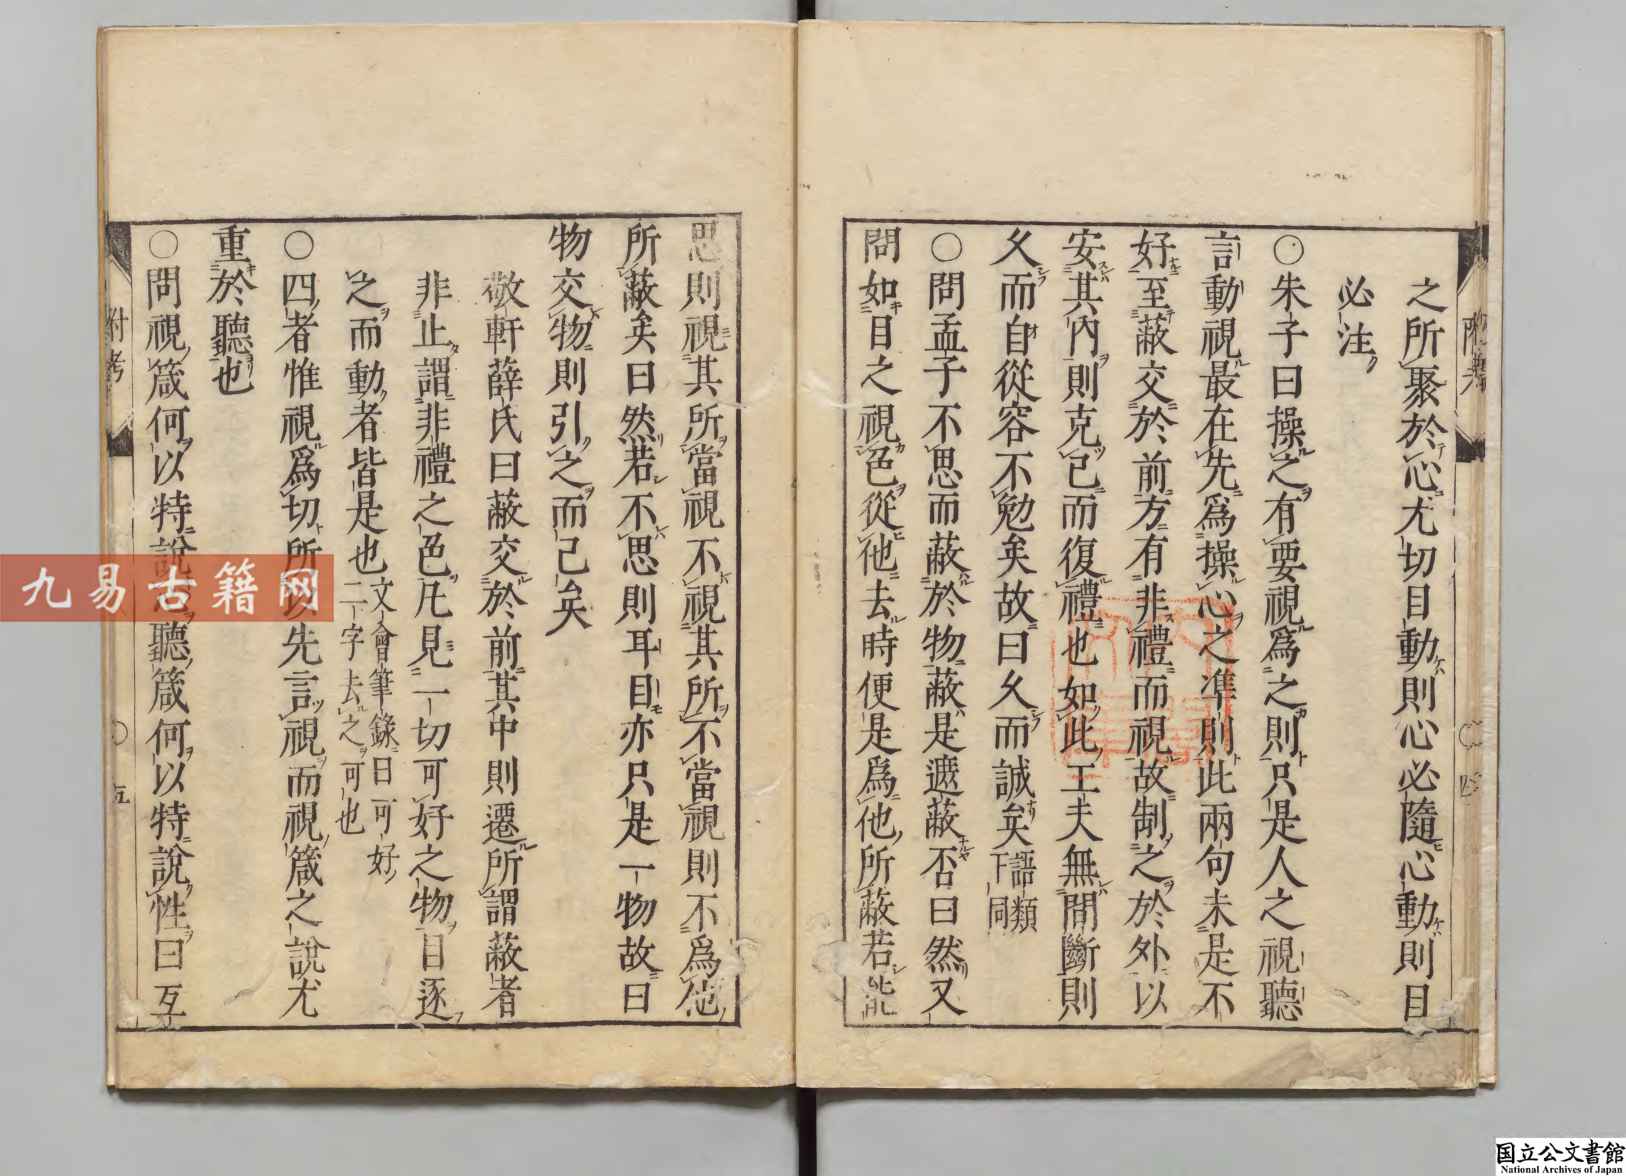 之所聚於心尤切目動則心必隨心動則目
必注
○朱子曰操之有要視爲之則只是人之視聽
言動視最在先爲操心之準則此兩句未是不
好至蔽交於前方有非禮而視故制之於外以
安其內則克己而復禮也如此工夫無間斷則
久而自從容不勉矣故曰久而誠矣語類下同
○問孟子不思而蔽於物蔽是遮蔽否曰然又
問如目之視色從他去時便是爲他所蔽若能
思則視其所當視不視其所不當視則不爲他
所蔽矣曰然若不思則耳目亦只是一物故曰
物交物則引之而已矣
敬軒薛氏曰蔽交於前其中則遷所謂蔽者
非止謂非禮之色凡見一切可好之物目逐
之而動者皆是也文會筆錄曰可好二字去之可也
○四者惟視爲切所以先言視而視箴之說尤
重於聽也
○問視箴何以特說心聽箴何以特說性曰互
附考
○
五
九易古籍网
国立公文書館
National Archives of Japan